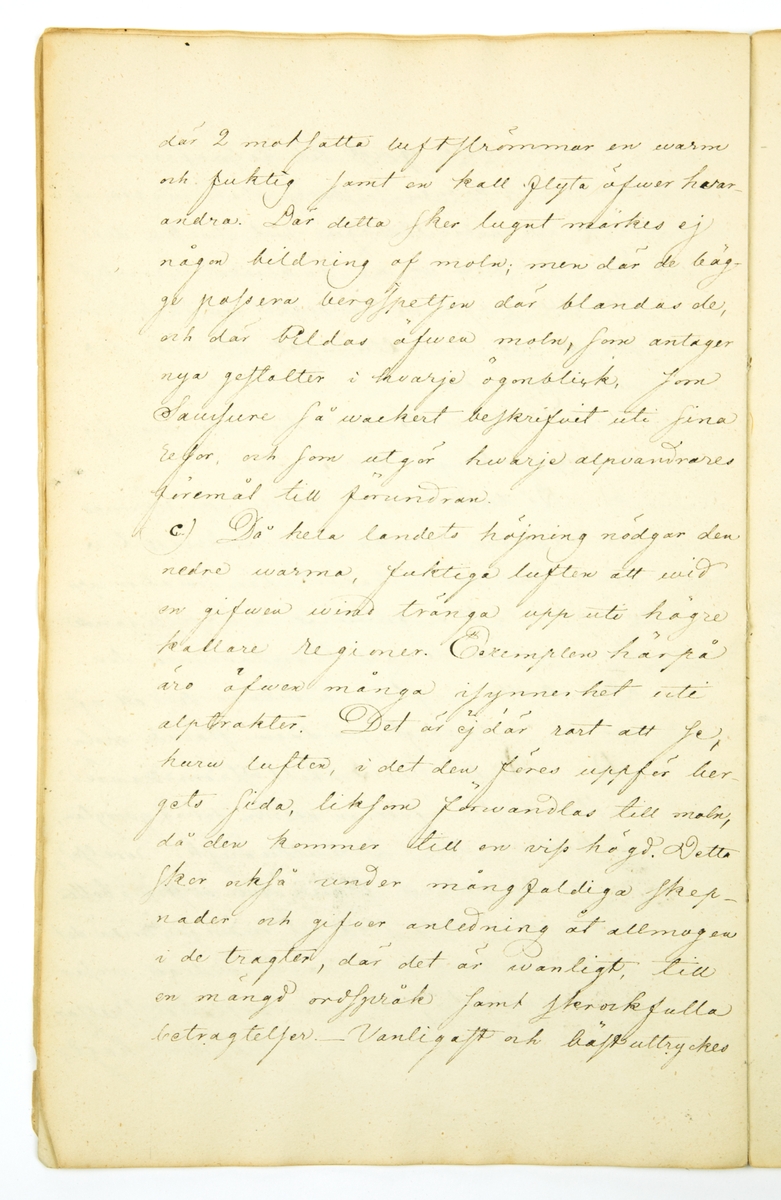 där 2 motsatta luftströmmar en warm
och fuktig samt en kall flyta öfwer hvar-
andra. Där detta sker lugnt märkes ej
någon bildning af moln; men där de bäg-
ge passera bergspetsen där blandas de,
och där bildas äfwen moln, som antager
nya gestalter i hvarje ögonblick, som
Saussure så wackert beskrifvit uti sina
resor, och som utgör hwarje alpvandrares
föremål till förundran.
c.) Då hela landets höjning nödgar den
nedre warma, fuktiga luften att wid
en gifwen wind tränga upp uti högre
kallare regioner. Exemplen härpå
äro äfwen många isynnerhet uti
alptrakter. Det är ej där rart att se,
huru luften, i det den föres uppför ber-
gets sida, liksom förwandlas till moln,
då den kommer till en viss högd. Detta
sker också under mångfaldiga skep-
nader och gifver anledning åt allmogen
i de tragter, där det är wanligt, till
en mängd ordspråk samt skrockfulla
betragtelser. — Vanligast och bäst uttryckes